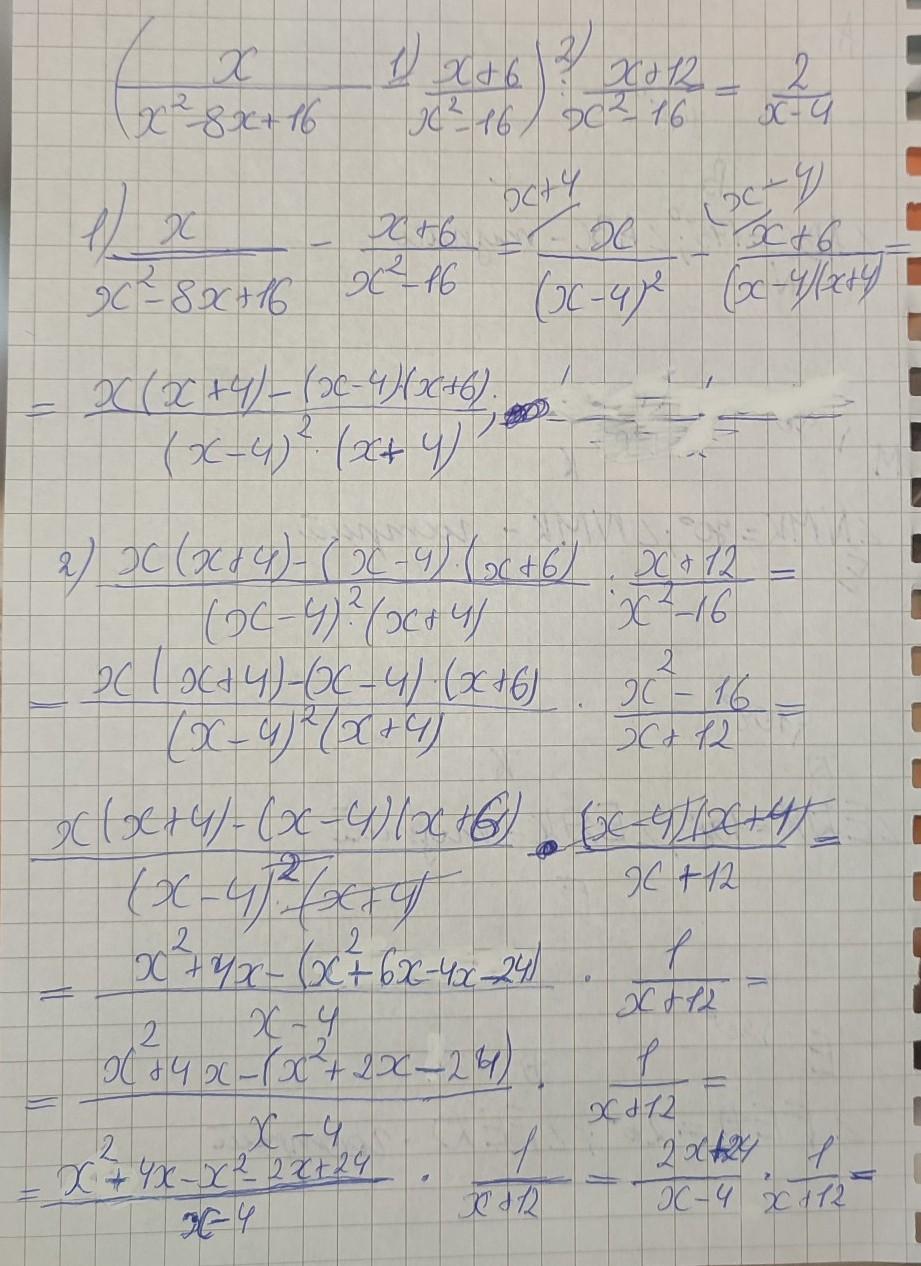 (x/(x²-8x+16) -¹⁾ (x+6)/(x²-16)) :²⁾ (x+12)/(x²-16) = 2/(x-4)
1) x/(x²-8x+16) - (x+6)/(x²-16) = ˣ⁺⁴/ x/(x-4)² - ⁽ˣ⁻⁴⁾/ (x+6)/((x-4)(x+4)) =
= (x(x+4)-(x-4)·(x+6))/((x-4)²·(x+4))
2) (x(x+4)-(x-4)·(x+6))/((x-4)²·(x+4)) : (x+12)/(x²-16) =
= (x(x+4)-(x-4)·(x+6))/((x-4)²(x+4)) · (x²-16)/(x+12) =
(x(x+4)-(x-4)(x+6))/((x-4)²·(x+4)) · ((x-4)(x+4))/(x+12) =
= (x²+4x-(x²+6x-4x-24))/(x-4) · 1/(x+12) =
= (x²+4x-(x²+2x-24))/(x-4) · 1/(x+12) =
= (x²+4x-x²-2x+24)/(x-4) · 1/(x+12) = (2x+24)/(x-4) · 1/(x+12) =